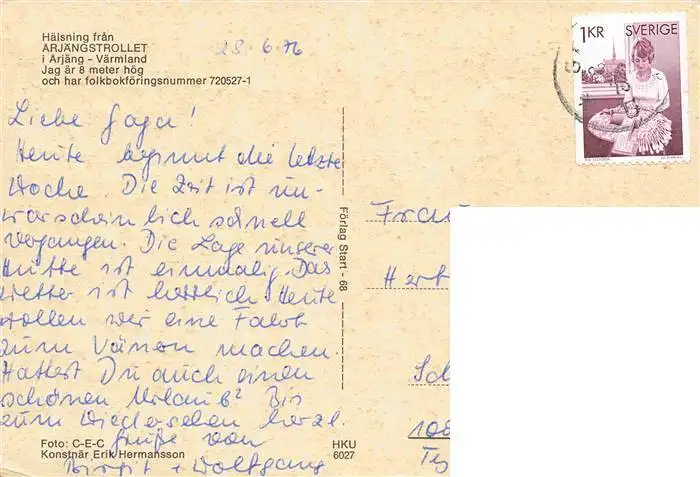 Hälsning från
ÅRJÄNGSTROLLET
i Årjäng - Värmland
Jag är 8 meter hög
och har folkbokföringsnummer 720527-1
28.6.76
1KR SVERIGE
Liebe Gaga!
Heute beginnt die letzte
Woche. Die Zeit ist un-
warscheinlich schnell
vergangen. Die Lage unserer
Hütte ist einmalig. Das
Wetter ist herrlich. Heute
wollen wir eine Fahrt
zum Vänen machen.
Hattest Du auch einen
schönen Urlaub? Bis
zum Wiedersehen herzl.
Grüße von
Birgit + Wolfgang
Förlag Start - 68
Frau
Hert
Sch
108
Te
Foto: C-E-C
Konstnär Erik Hermansson
HKU
6027